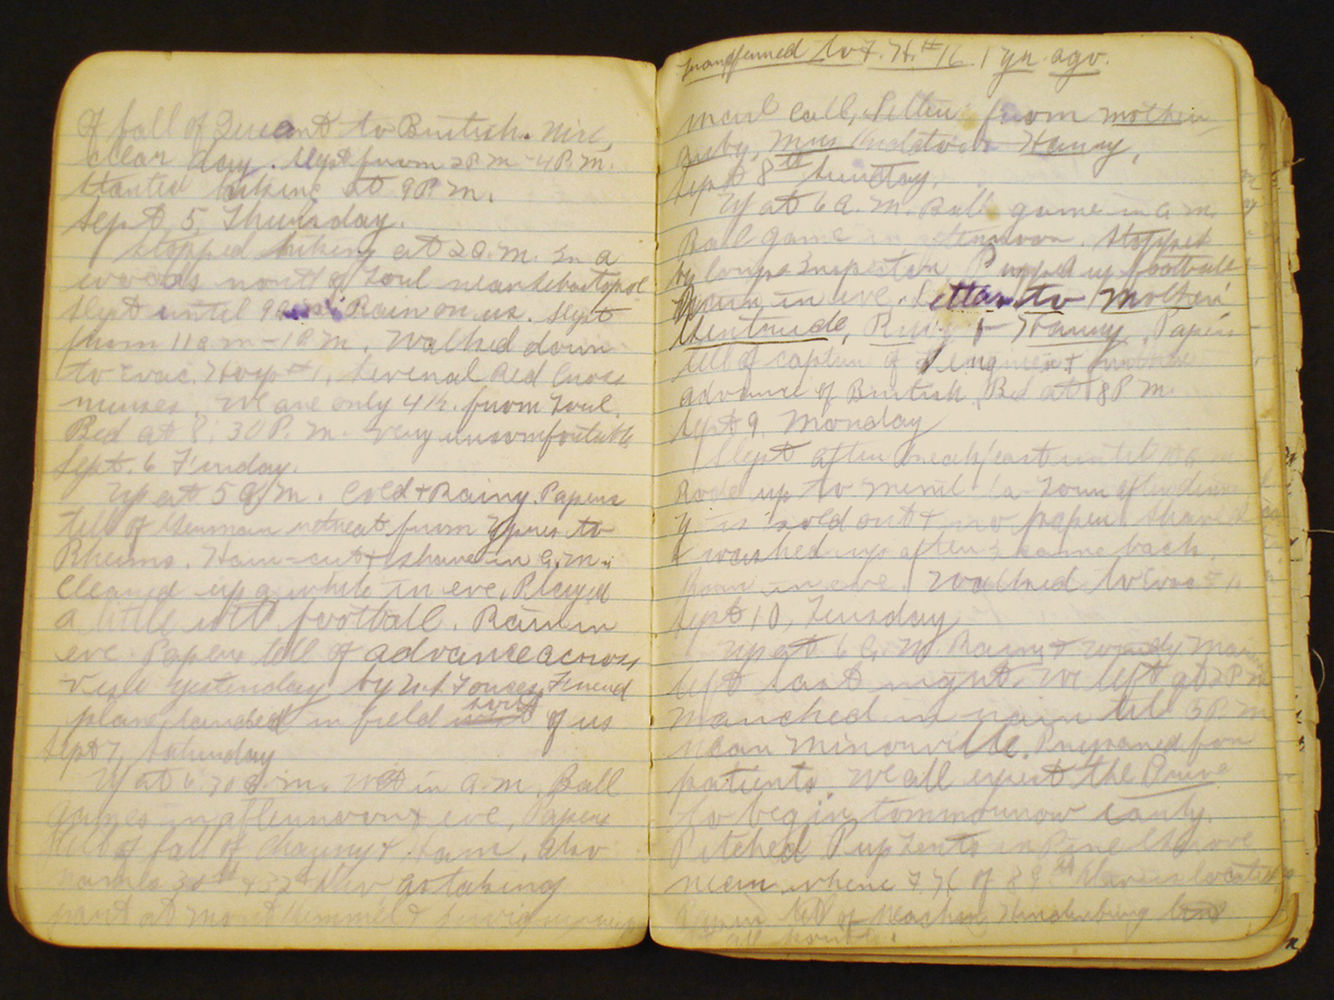 Of fall of Queant to British. Nice,
clear day. Slept from 2 P.M - 4 P.M.
Started hiking at 9 P.M.
Sept, 5, Thursday.
Stopped hiking at 2 A.M. in a
woods north of Toul near Sebastopol
Slept until 9 Rain on us. Slept
from 11 a m - P M. Walked down
to Evac. Hosp #1. Several Red Cross
nurses. We are only 4 K. from Toul.
Bed at 8:30 P.M. very uncomfortable
Sept. 6 Friday.
Up at 5 A.M. Cold + Rainy. Papers
tell of German retreat from Ypres to
Rheims. Hair-cut + shave in A.M.
Cleaned up a while in eve, Played
a little football. Rain in
eve. Papers tell of advance across
Vesle yesterday by U.S. Forces. Friend
plane landed in field of us
Sept 7, Saturday
Up at 6:30 a.m. Wet in a.m. Ball
games in afternoon + eve, Papers
tell of fall of +. Also
names 30th + 32 Div as taking
part at +
transferred to F. H. #16 1 yr. ago.
mail call, Letters from mother
Ruby, Mrs Hanny,
Sept 8th Sunday.
Up at 6 A.M. Ball game in A M.
Ball game in afternoon. Stopped
by long inspection. Pupped up football
again in eve. Letters to Mother
Gertrude, Ruby + Hanny. Papers
tell of capture of + further
advance of British. Bed at 8 P M.
Sept 9, Monday
Slept after breakfast until 10 A m
Rode up to Menil la Tour after dinner,
Y is sold out + no paper. Shaved
+ washed up after I came back
Rain in eve. Walked to Evac # 1,
Sept 10, Tuesday
Up at 6 A. M. Rainy + windy
left last night. We left at 2 P M
Marched in rain til 5 P. M
near Minorville. Prepared for
patients. We all expect the Drive
to begin tommorrow early.
Pitched Pup Tents in Pine Grove
near where F. H. of 89th Div is located
Again tell of Hindenburg line
all points.